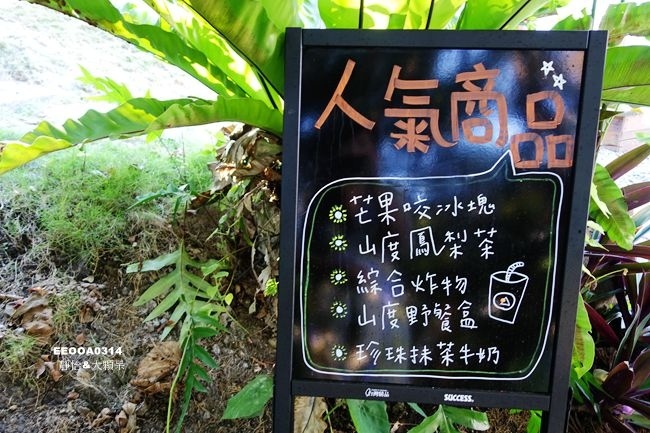 人氣商品
芒果啵冰塊
山度鳳梨茶
綜合炸物
山度野餐盒
珍珠抹茶牛奶
SUCCESS.
EEOOA0314